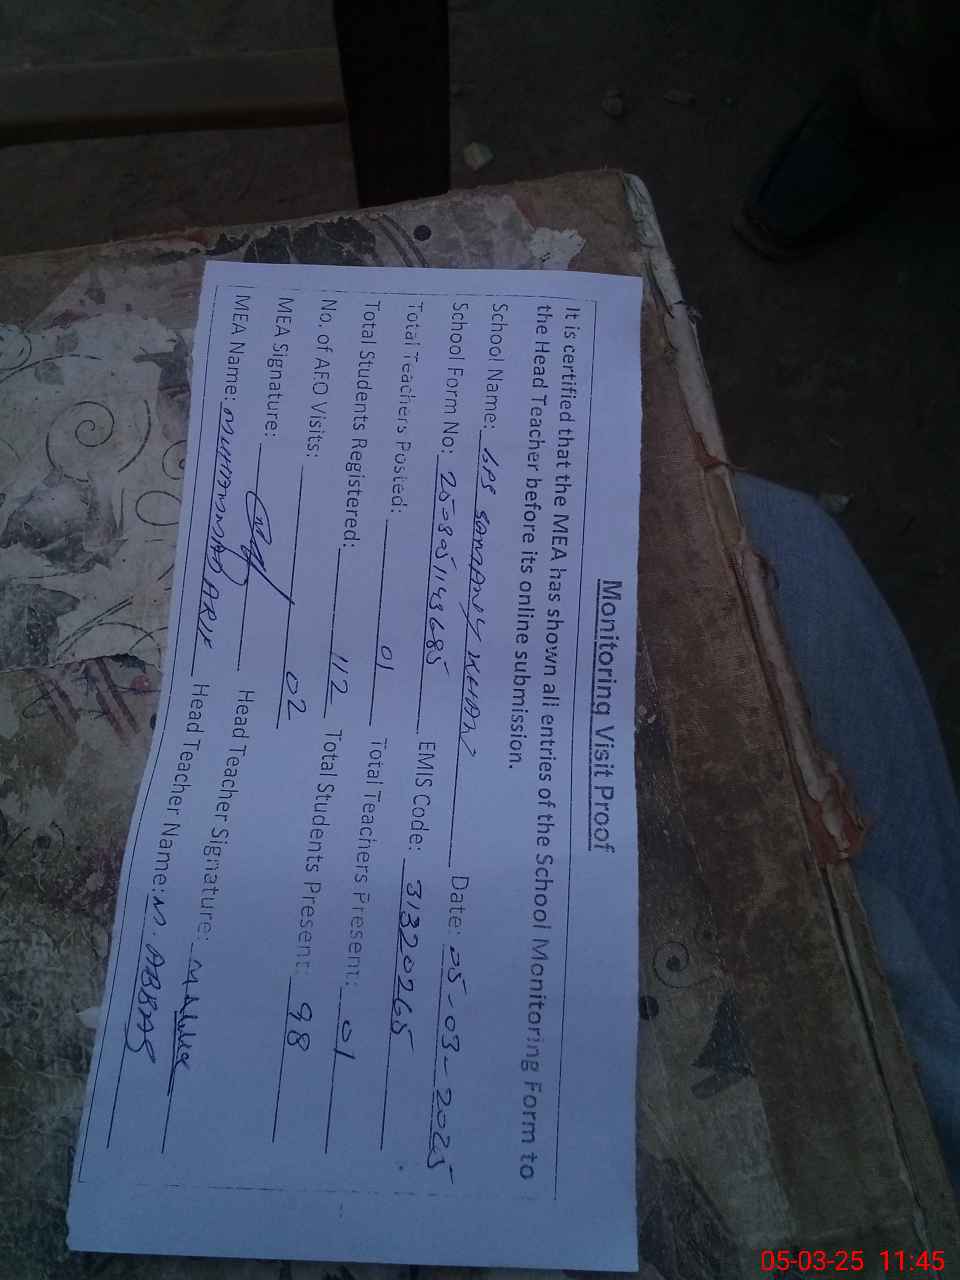 Monitoring Visit Proof
It is certified that the MEA has shown all entries of the School Monitoring Form to
the Head Teacher before its online submission.
School Name: GPS Date: 05-03-2025
School Form No: EMIS Code: 31320265
Total Teachers Posted: 01 Total Teachers Present: 01
Total Students Registered: 112 Total Students Present: 98
No. of AEO Visits: 02
MEA Signature: Head Teacher Signature:
MEA Name: MUHAMMAD ARIF Head Teacher Name: M. ABBAS
05-03-25 11:45